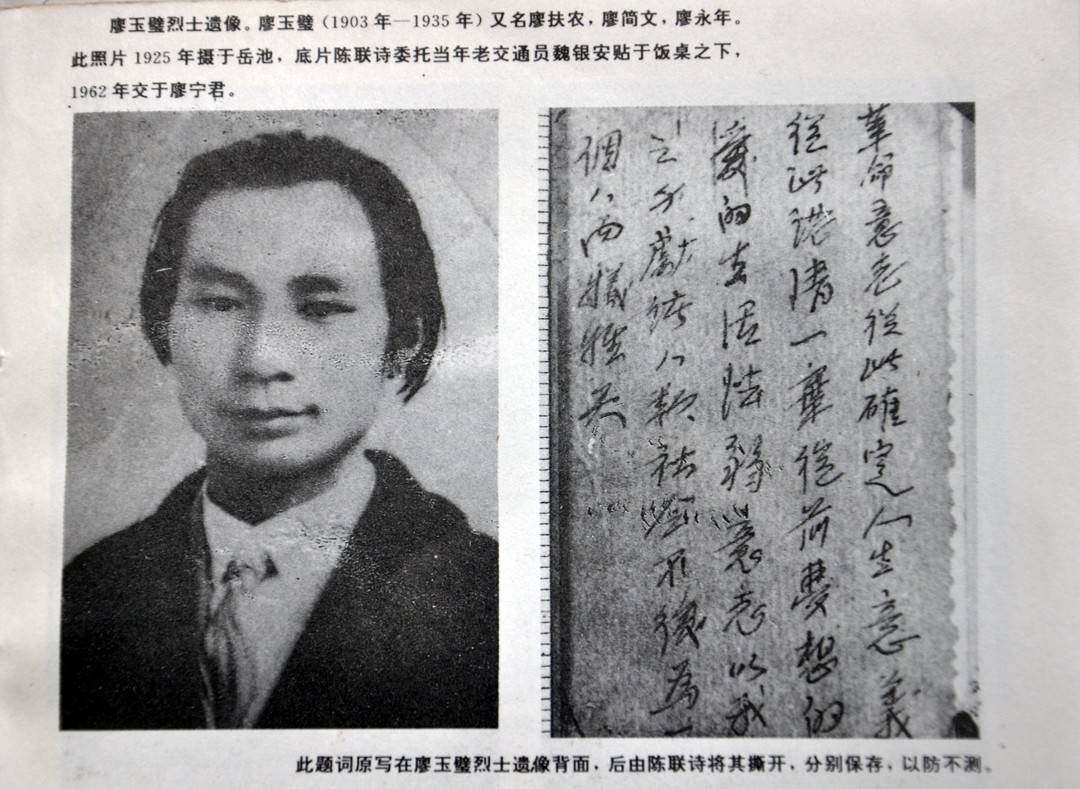 廖玉璧烈士遗像。廖玉璧（1903年—1935年）又名廖扶农，廖简文，廖永年。
此照片1925年摄于岳池，底片陈联诗委托当年老交通员魏银安贴于饭桌之下，
1962年交于廖宁君。
革命意志從此確定人生意義
從此認清一棄從前夢想的
愛的生活 意志以我
之 獻諸人類社會 復為一
個人而犧牲矣
此题词原写在廖玉璧烈士遗像背面，后由陈联诗将其撕开，分别保存，以防不测。